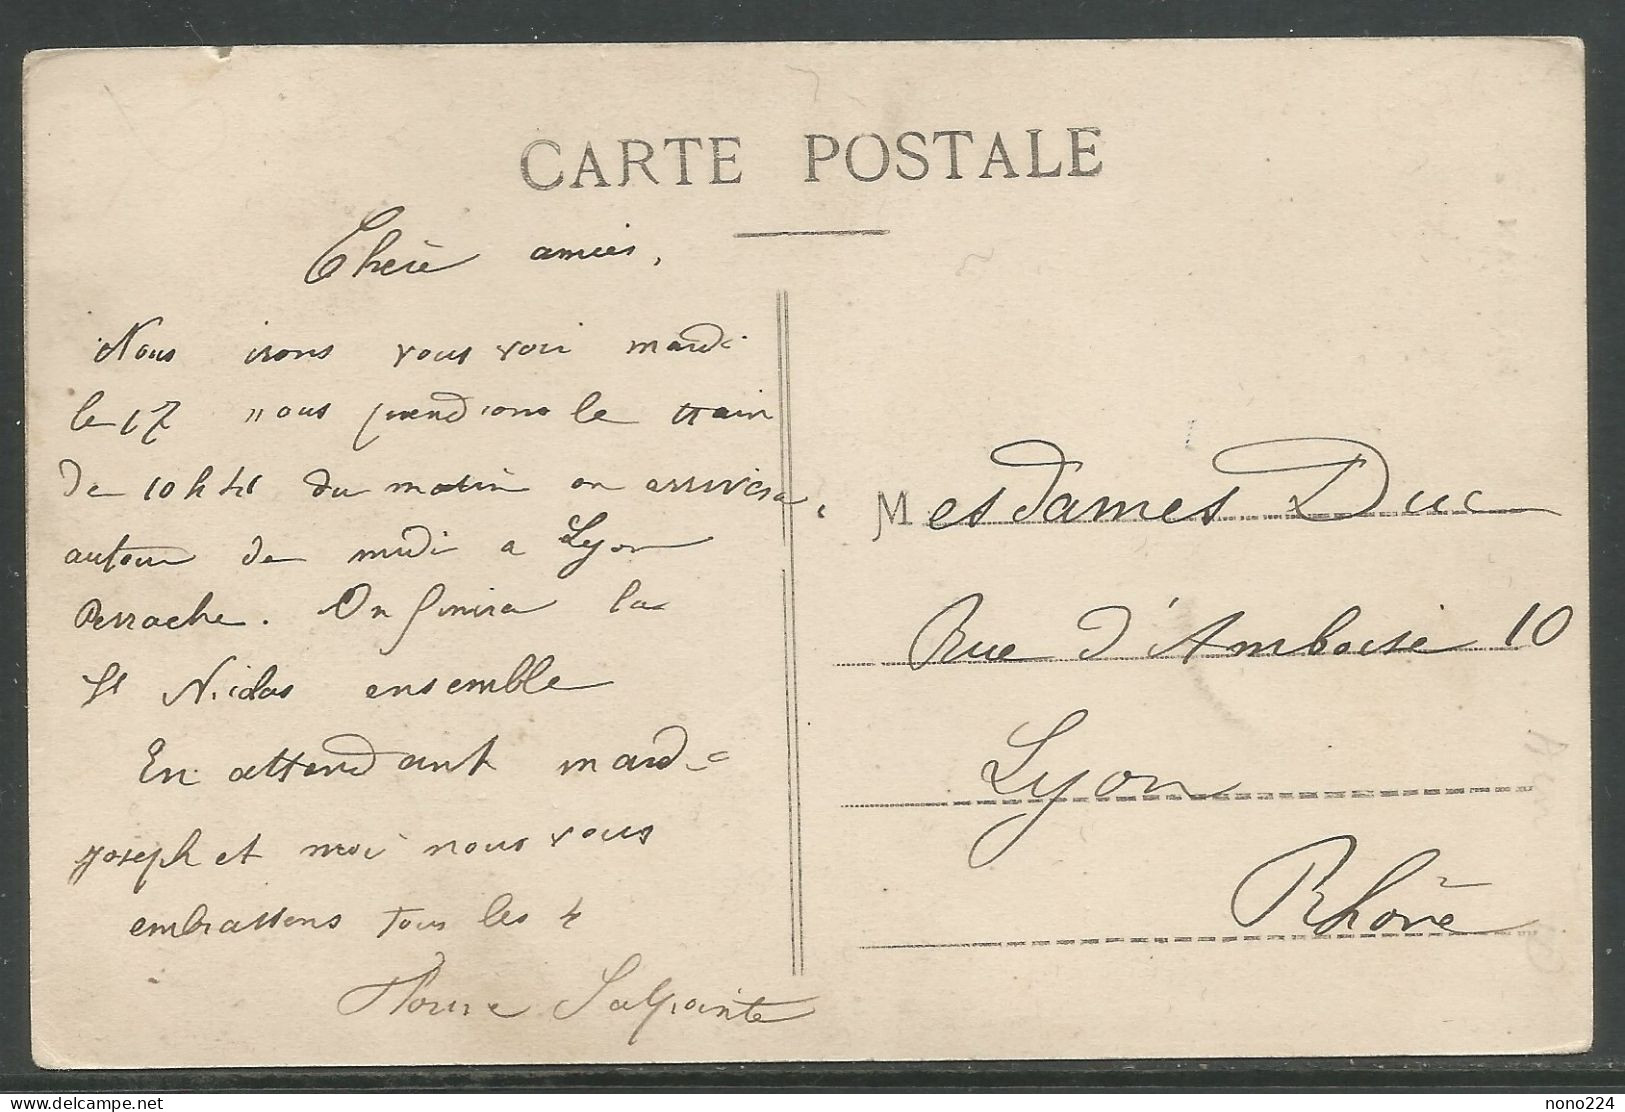 CARTE POSTALE
Chère amies,
Nous irons vous voir mardi
le 17 nous prendrons le train
de 10h41 du matin on arrivera
autour de midi a Lyon
Perrache. On finira la
St Nicolas ensemble
En attendant mardi
Joseph et moi nous vous
embrassons tous les 4
Salpointe
Mesdames Duc
Rue d'Amboise 10
Lyon
Rhône
nono224